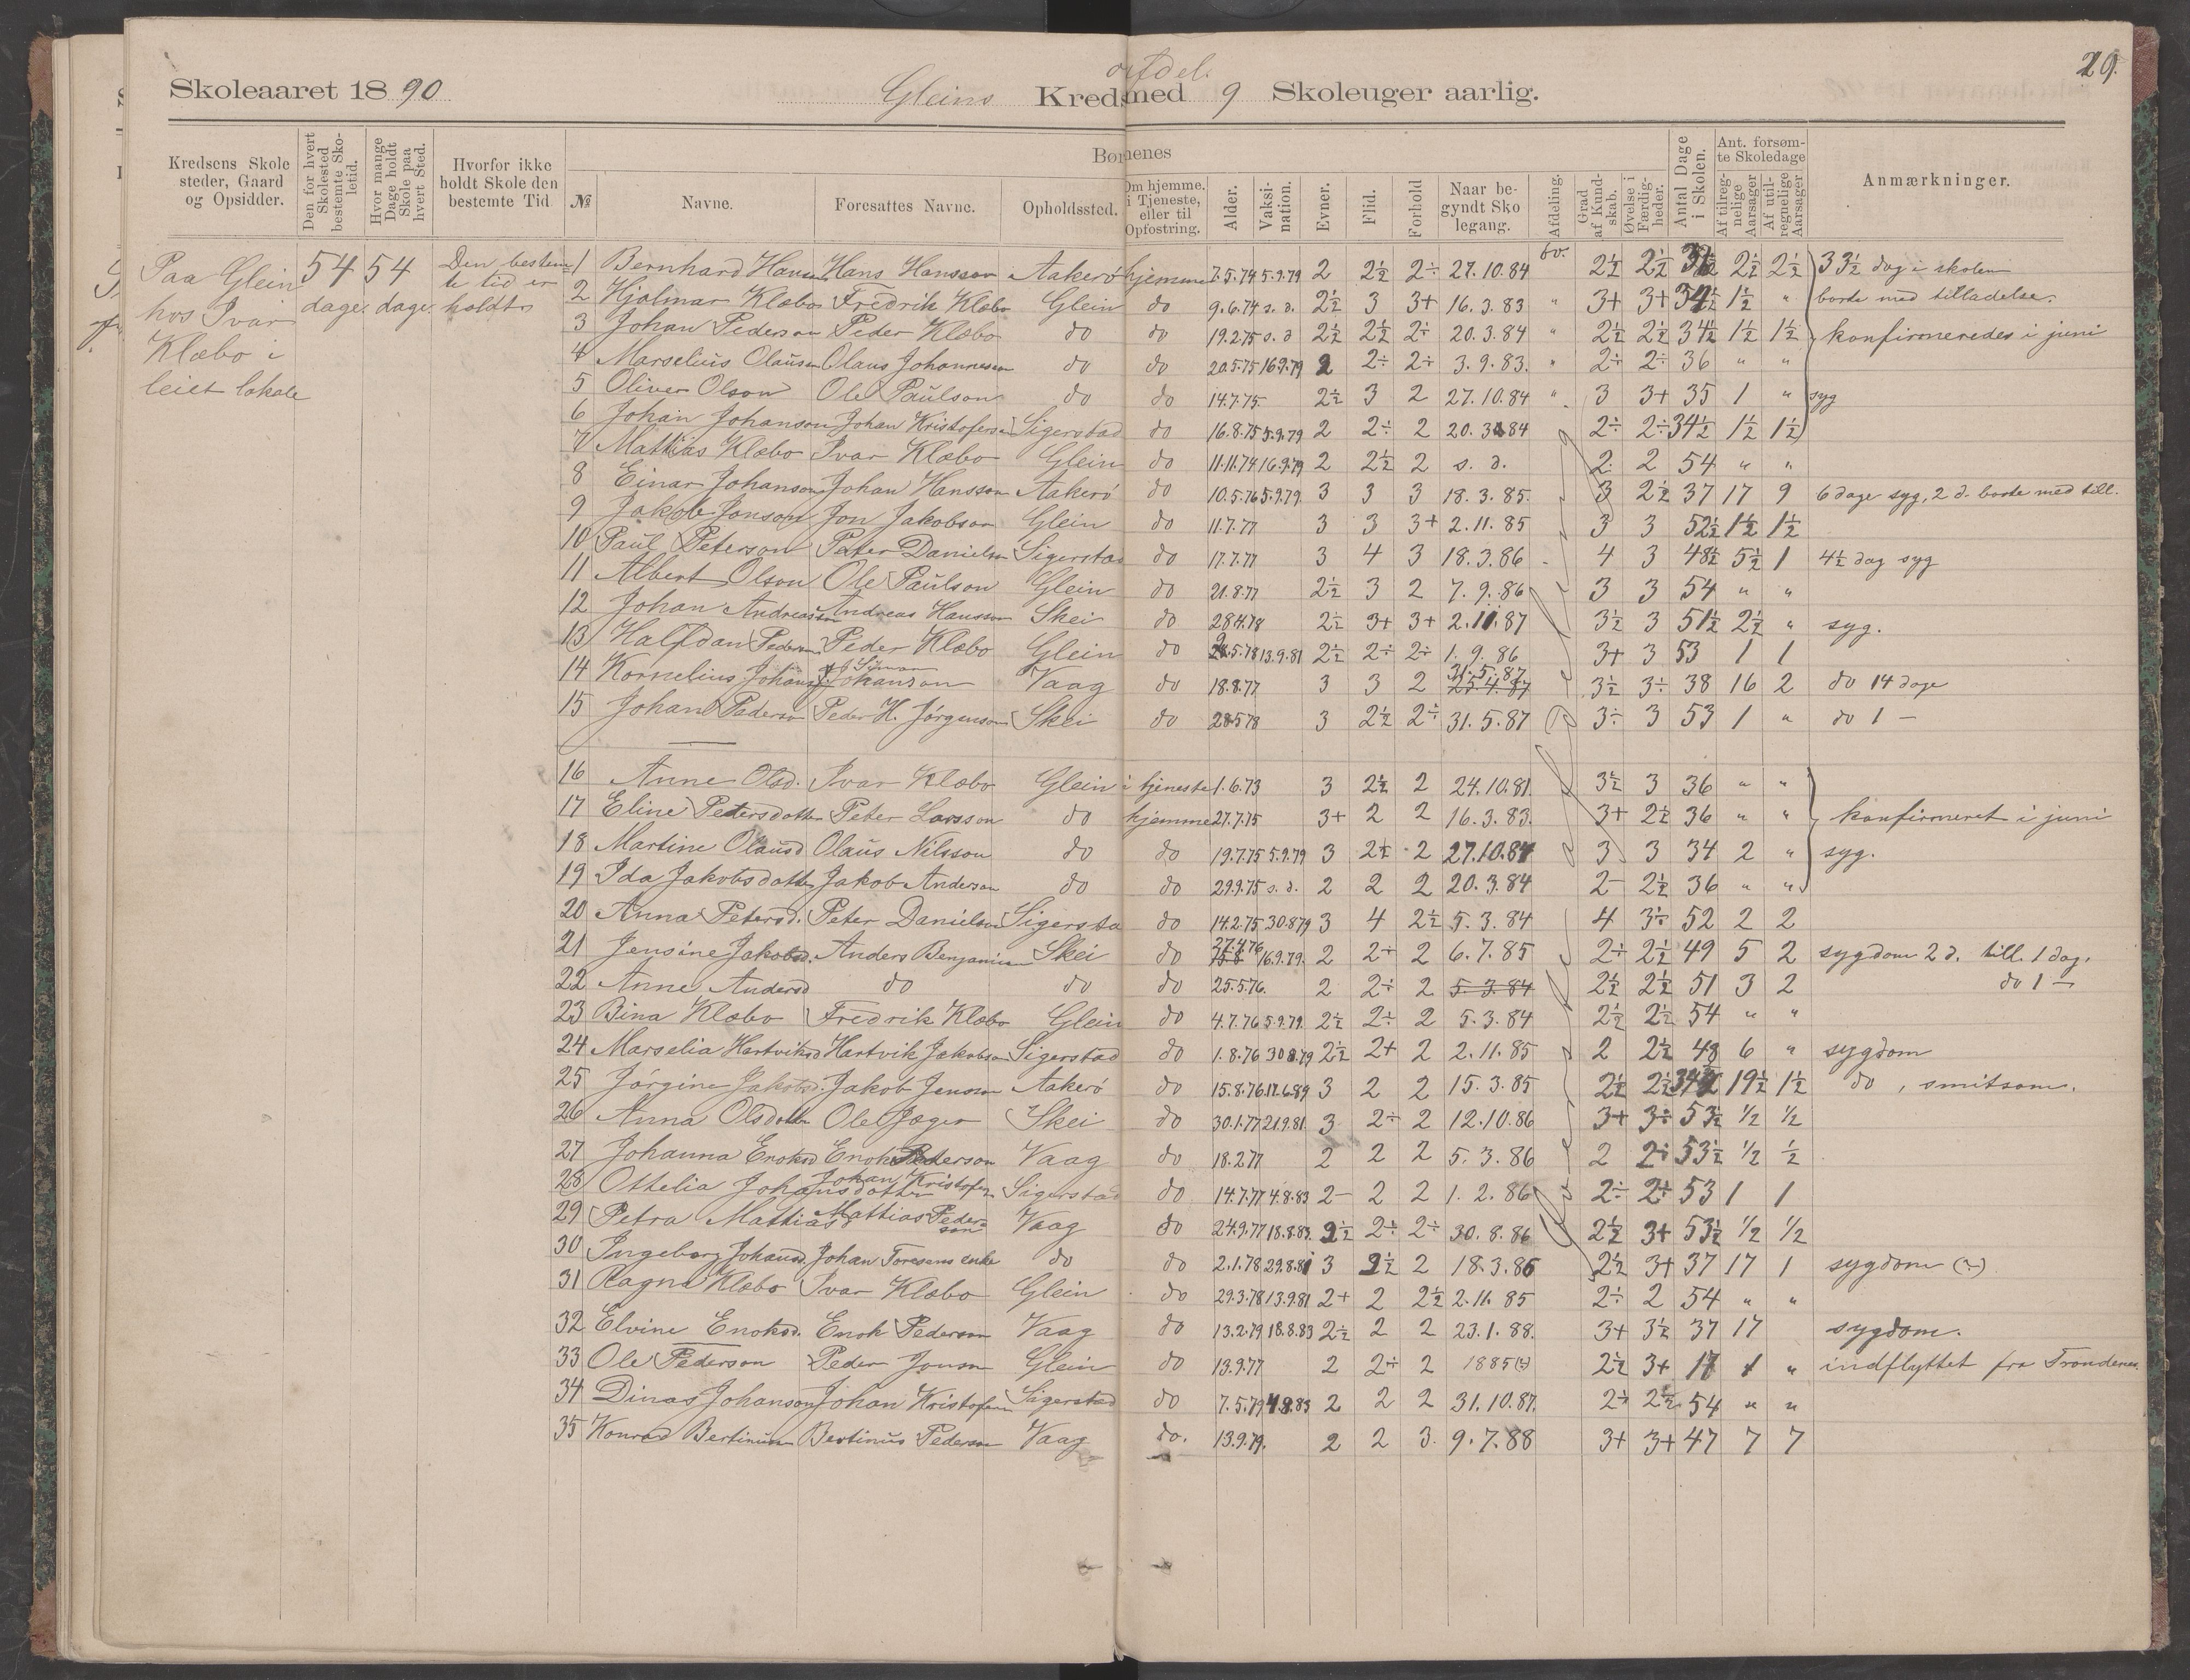 29.
østdel.
Skoleaaret 1890 Gleins Kreds med 9 Skoleuger aarlig.
Kredsens Skolesteder, Gaard og Opsidder.
Den for hvert Skolested bestemte Skoletid.
Hvor mange Dage holdt Skole paa hvert Sted.
Hvorfor ikke holdt Skole den bestemte Tid
Børnenes
№
Navne.
Foresattes Navne.
Opholdssted.
Om hjemme, i Tjeneste, eller til Opfostring.
Alder.
Vaksination.
Evner.
Flid.
Forhold
Naar begyndt Skolegang.
Afdeling.
Grad af Kundskab.
Øvelse i Færdigheder.
Antal Dage i Skolen.
Ant. forsømte Skoledage
Af tilregnelige Aarsager
Af utilregnelige Aarsager.
Anmærkninger.
Paa Glein
hos Ivar
Klæbo i
leiet lokale
54 dage.
54 dage.
Den bestem=
te tid er
holdt
1 Bernhard Hanss Hans Hansson Aakerø hjemme 7.5.74 5.9.79 2 2½ 2÷ 27.10.84 2½ 2½ 2½ 2½ 33½ dag i skolen
2 Hjalmar Klæbo Fredrik Klæbo Glein do 9.6.74 s. d. 2½ 3 3+ 16.3.83 " 3+ 3+ 34½ 1½ " borte med tilladelse.
3 Johan Pederson Peder Klæbo do do 19.2.75 s. d 2½ 2½ 2÷ 20.3.84 " 2½ 2½ 34½ 1½ 1½ konfirmeredes i juni
4 Marselius Olausen Olaus Johannesson do do 20.5.75 16.9.79 2 2÷ 2÷ 3.9.83. " 2÷ 2÷ 36 " "
5 Oliver Olson Ole Paulson do do 14.7.75. 2½ 3 2 27.10.84 " 3 3+ 35 1 " syg
6 Johan Johanson Johan Kristoferson Sigerstad do 16.8.75 5.9.79 2 2÷ 2 20.3.84 2÷ 2÷ 34½ 1½ 1½
7 Mattias Klæbo Ivar Klæbo Glein do 11.11.74 16.9.79 2 2½ 2 s. d. 2 2 54 " "
8 Einar Johanson Johan Hansson Aakerø do 10.5.76 5.9.79 3 3 3 18.3.85. 3 2½ 37 17 9 6 dage syg, 2 d. borte med till.
9 Jakob Jonson Jon Jakobson Glein do 11.7.77 3 3 3+ 2.11.85 3 3 52½ 1½ 1½
10 Paul Peterson Peter Danielsn Sigerstad do 17.7.77 3 4 3 18.3.86 4 3 48½ 5½ 1 4½ dag syg
11 Albert Olson Ole Paulson Glein do 21.8.77 2½ 3 2 7.9.86 3 3 54 " "
12 Johan Andreasson Andreas Hansson Skei do 28.4.78 2½ 3+ 3+ 2.11.87 3½ 3 51½ 2½ " syg.
13 Halfdan Pederson Peder Klæbo Glein do 5.78 13.9.81 2½ 2÷ 2÷ 1.9.86 3+ 3 53 1 1
14 Kornelius Johans Simon Johanson Vaag do 18.8.77 3 3 2 31.5.87 3½ 3÷ 38 16 2 do 14 dage
15 Johan Pederson Peder H. Jørgenson Skei do 28.5.78 3 2½ 2÷ 31.5.87 3÷ 3 53 1 " do 1 —
16 Anne Olsd. Ivar Klæbo Glein i tjeneste 1.6.73 3 2½ 2 24.10.81. 3½ 3 36 " "
17 Eline Petersdotter Peter Larsson do hjemme 27.7.75 3+ 2 2 16.3.83. 3+ 2½ 36 " " konfirmeret i juni
18 Martine Olausd Olaus Nilsson do do 19.7.75 5.9.79 3 2½ 2 27.10.84 3 3 34 2 " syg.
19 Ida Jakobsdotter Jakob Anderson do do 29.9.75 s. d. 2 2 2 20.3.84 2- 2½ 36 " "
20 Anna Petersd. Peter Danielson Sigersta do 14.2.75 30.8.79 3 4 2½ 5.3.84 4 3÷ 52 2 2
21 Jensine Jakobsd. Anders Benjaminsen Skei do 27.4.76 16.9.79. 2 2÷ 2 6.7.85 2÷ 2½ 49 5 2 sygdom 2 d. till. 1 dag.
22 Anne Andersd do do do 25.5.76. 2 2÷ 2 5.3.84 2½ 2½ 51 3 2 do 1 —
23 Bina Klæbo Fredrik Klæbo Glein do 4.7.76 5.9.79. 2½ 2÷ 2 5.3.84 2½ 2½ 54 " "
24 Marselia Hartviksd Hartvik Jakobson Sigerstad do 1.8.76 30.8.79 2½ 2+ 2 2.11.85 2 2½ 48 6 " sygdom
25 Jørgine Jakobsd. Jakob Jensson Aakerø do 15.8.76 17.6.89 3 2 2 15.3.85 2½ 2½ 34½ 19½ 1½ do , smitsom.
26 Anna Olsdotter Ole Jæger Skei do 30.1.77 21.9.81 3 2÷ 2 12.10.86 3+ 3÷ 53½ ½ ½
27 Johanna Enoksd Enok Pederson Vaag do 18.2.77 2 2 2 5.3.86 2 2÷ 53½ ½ ½
28 Othelia Johansdotter Johan Kristofer Sigerstad do 14.7.77 4.8.83 2- 2 2 1.2.86 2÷ 2+ 53 1 1
29 Petra Mattiasd Mattias Pederson Vaag do 24.9.77 18.8.83. 2½ 2÷ 2÷ 30.8.86 2½ 3+ 53½ ½ ½
30 Ingeborg Johansd. Johan Toresens enke do do 2.1.78 29.8.81 3 2½ 2 18.3.86 2½ 3+ 37 17 1 sygdom (?)
31 Ragna Klæbo Ivar Klæbo Glein do 29.3.78 13.9.81 2+ 2 2½ 2.11.85 2÷ 2 54 " "
32 Elvine Enoksd. Enok Pederson Vaag do 13.2.79 18.8.83 2½ 2 2 23.1.88. 3+ 3½ 37 17 sygdom.
33 Ole Pederson Peder Jonsn Glein do 13.9.77 2 2÷ 2 1885(?) 2½ 3+ 17 1 " indflyttet fra Trondenes
34 Dinas Johanson Johan Kristofersn Sigerstad do 7.5.79 4.8.83 2 2 2 31.10.87. 2÷ 2½ 54 " "
35 Konrad Bertinusn Bertinus Pederson Vaag do. 13.9.79. 2 2 3. 9.7.88 3+ 3+ 47 7 7